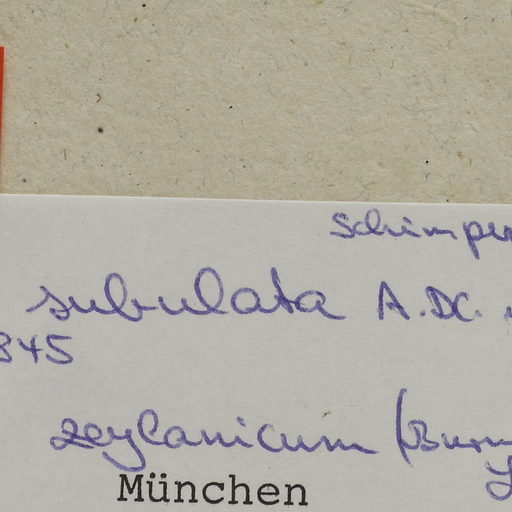 Schimper
subulata A.DC.
345
zeylanicum (Burm
München